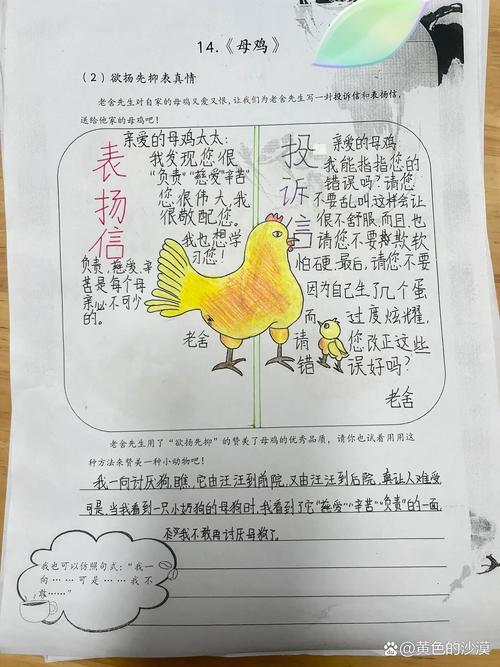 14.《母鸡》
（2）欲扬先抑表真情
老舍先生对自家的母鸡又爱又恨，让我们为老舍先生写一封投诉信和表扬信，
送给他家的母鸡吧！
表扬信
亲爱的母鸡太太：
我发现您很
“负责”“慈爱”“辛苦”
您很伟大，我
很敬配您。
我也想学
习您！
负责，慈爱，辛
苦是每个母
亲必不可少
的。
老舍
投诉信
亲爱的母鸡
我能指指您的
错误吗？请您
不要乱叫，这样会让
很不舒服，而且，也
请您不要欺欺软
怕硬，最后，请您不要
因为自己生了几个蛋
而过度炫耀，
请您改正这些
错误好吗？
老舍
老舍先生用了“欲扬先抑”的赞美了母鸡的优秀品质，请你也试着用用这
种方法来赞美一种小动物吧！
我一向讨厌狗，瞧，它由汪汪到前院，又由汪汪到后院，真让人难受
可是，当我看到一只小奶狗的母狗时，我看到了它“慈爱”“辛苦”“负责”的一面，
我不敢再讨厌母狗了。
我也可以仿照句式：“我一
向……可是……我不
敢……”
@黄色的沙漠